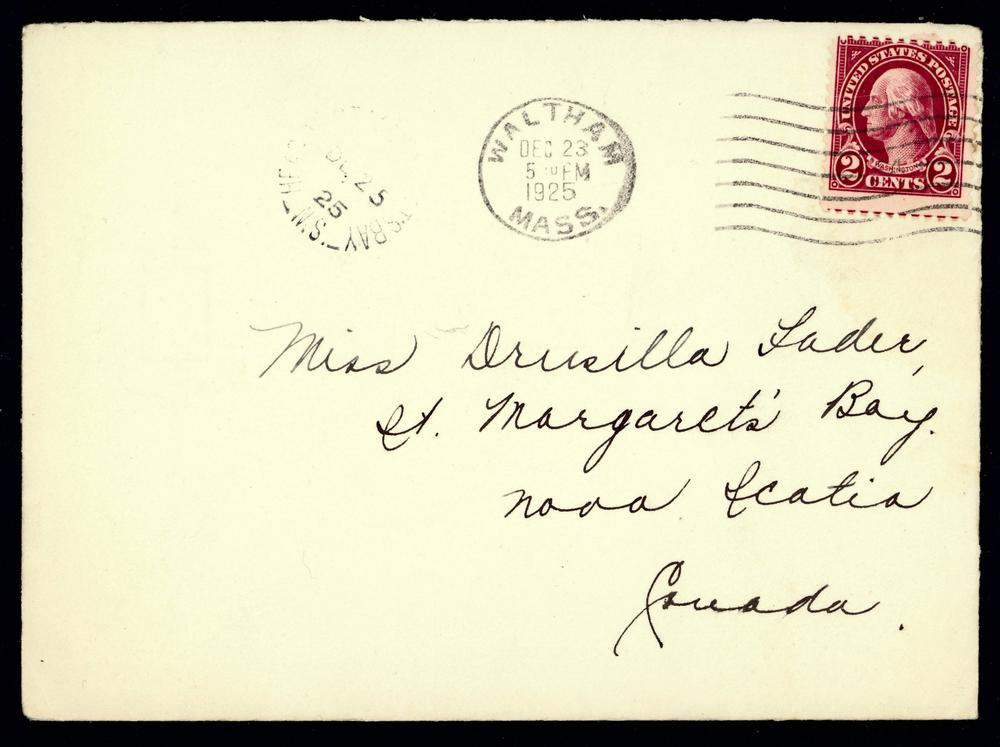 UNITED STATES POSTAGE
WASHINGTON
2 CENTS 2
WALTHAM
DEC 23
5 PM
1925
MASS.
25
25
N.S.
Miss Drusilla Lader,
St. Margaret's Bay.
Nova Scotia
Canada.